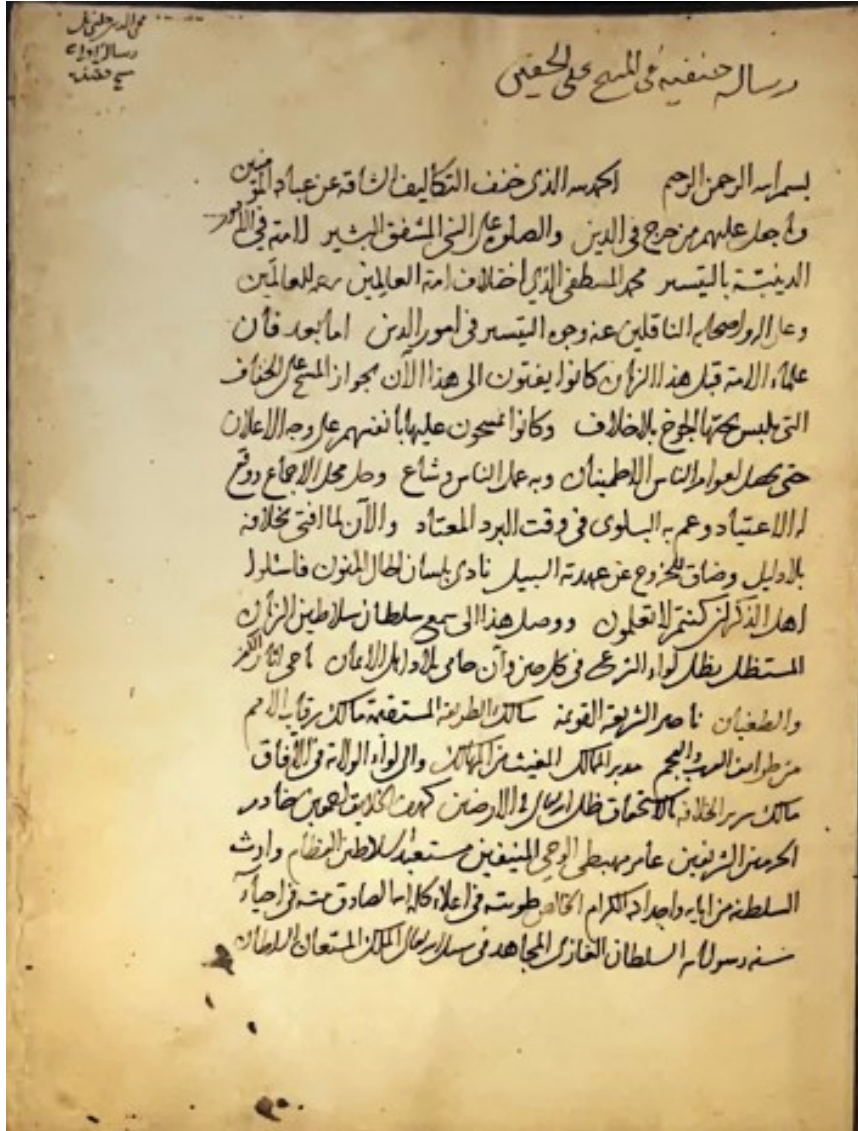 محى الدين چلبى نك
رساله
رساله حنفيه فى المسح على الخفين
بسم الله الرحمن الرحيم الحمد لله الذى خفف التكاليف الشاقة عن عباده المؤمنين
وما جعل عليهم من حرج فى الدين والصلوة على النبى المشفق البشير لامته فى الامور
الدينيّة باليتسير محمد المسطفى الذى اختلاف امة العالمين رحمة للعالمين
وعلى اله واصحابه الناقلين عنه وجوه التيسير فى امور الدين اما بعد فان
علماء الامة قبل هذا الزمان كانوا يفتون الى هذا الآن بجواز المسح على الخفاف
التى يلبس تحتها الجوخ بلا خلاف وكانوا يمسحون عليها بانفسهم على وجه الاعلان
حتى يحصل لعوام الناس الاطمينان وبه عمل الناس وشاع وحل محل الاجماع ووقع
له الاعتياد وعم به البلوى فى وقت البرد المعتاد والآن لما افتى بخلافه
بلا دليل وضاق للخروج عن عهدته السبيل نادى بلسان الحال المفتون فاسئلوا
اهل الذكر ان كنتم لا تعلمون ووصل هذا الى سمع سلطان سلاطين الزمان
المستظل بظل لواء الشرع فى كل حين وآن حامى بلاد اهل الايمان ماحى اثار الكفر
والطغيان ناصر الشريعة القويمة سالك الطريقة المستقيمة مالك رقاب الامم
من طوايف العرب والعجم مدبر الممالك المغيث من المهالك والى لواء الولاية فى الآفاق
مالك سرير الخلافة بالاستحقاق ظل الله تعالى فى الارضين كهف الخلايق اجمعين خادم
الحرمين الشريفين عامر مهبطى الوحى المنيفين مستعبد السلاطين العظام وارث
السلطنة من ابايه واجداده الكرام الخالص طويته فى اعلاء كلمة الله الصادق نيته فى احياء
سنة رسول الله السلطان الغازى المجاهد فى سبيل الله تعالى الملك المستعان السلطان